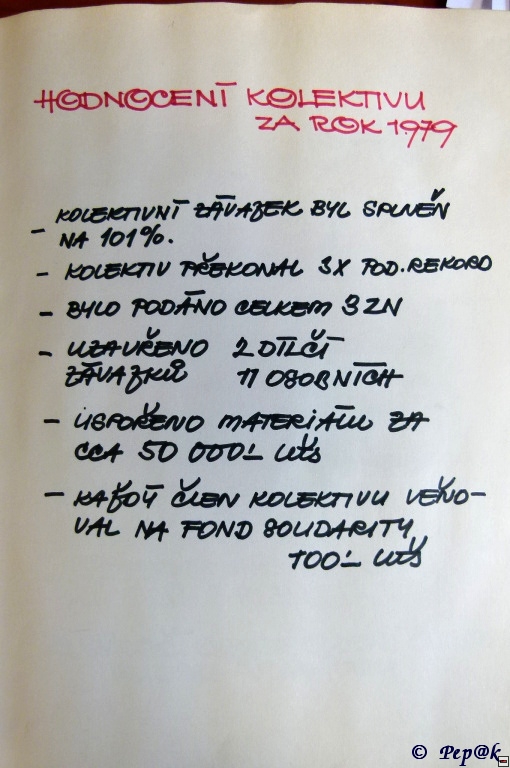 HODNOCENÍ KOLEKTIVU
ZA ROK 1979
- KOLEKTIVNÍ ZÁVAZEK BYL SPLNĚN
NA 101%.
- KOLEKTIV PŘEKONAL 3X POD. REKORD
- BYLO PODÁNO CELKEM 3 ZN
- UZAVŘENO 2 DÍLČÍ
ZÁVAZKŮ 11 OSOBNÍCH
- USPOŘENO MATERIÁLU ZA
CCA 50 000,- Kčs
- KAŽDÝ ČLEN KOLEKTIVU VĚNO-
VAL NA FOND SOLIDARITY
100,- Kčs
© Pep@k